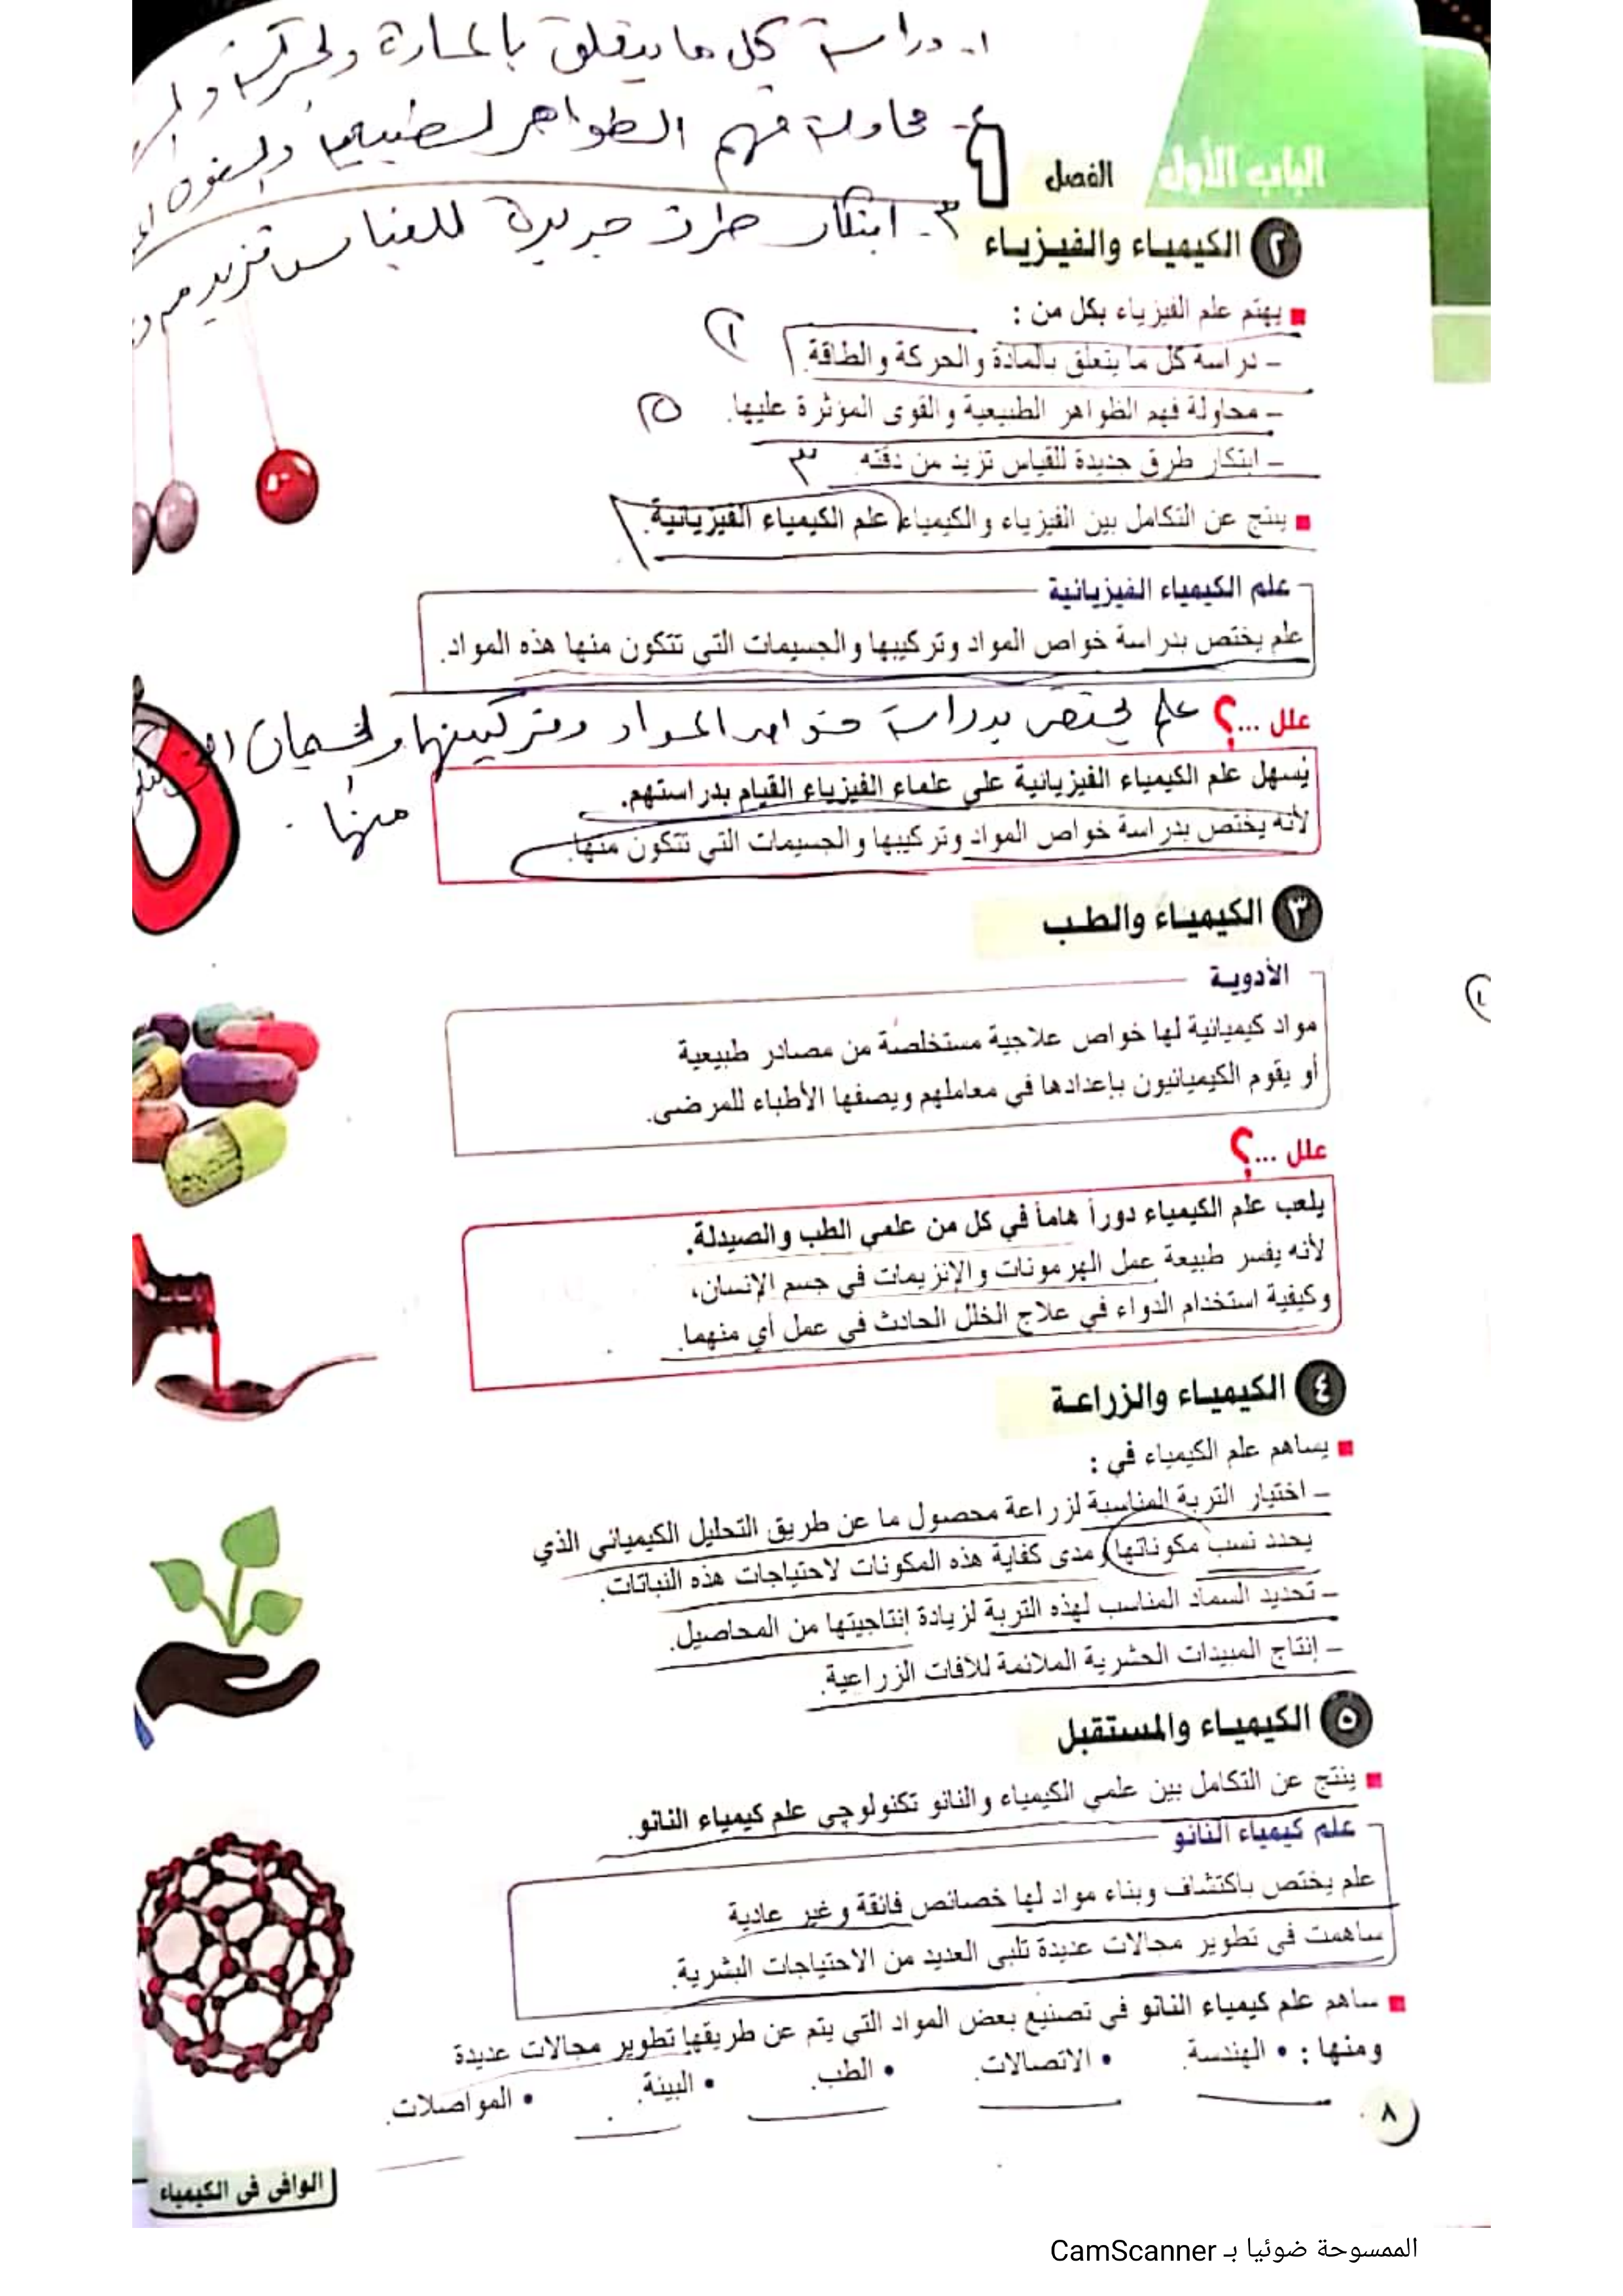 ١- دراسة كل ما يتعلق بالمادة والحركة
٢- محاولة فهم الظواهر الطبيعية والقوى
٣- ابتكار طرق جديدة للقياس تزيد من
الباب الأول
الفصل ١
٢ الكيمياء والفيزياء
يهتم علم الفيزياء بكل من :
– دراسة كل ما يتعلق بالمادة والحركة والطاقة. ١
– محاولة فهم الظواهر الطبيعية والقوى المؤثرة عليها.
– ابتكار طرق جديدة للقياس تزيد من دقته. ٣
ينتج عن التكامل بين الفيزياء والكيمياء علم الكيمياء الفيزيائية.
علم الكيمياء الفيزيائية
علم يختص بدراسة خواص المواد وتركيبها والجسيمات التي تتكون منها هذه المواد.
علل ...؟
علم يختص بدراسة خواص المواد وتركيبها والجسيمات
منها
يُسهل علم الكيمياء الفيزيائية على علماء الفيزياء القيام بدراستهم.
لأنه يختص بدراسة خواص المواد وتركيبها والجسيمات التي تتكون منها.
٣ الكيمياء والطب
الأدوية
مواد كيميائية لها خواص علاجية مستخلصة من مصادر طبيعية
أو يقوم الكيميائيون بإعدادها في معاملهم ويصفها الأطباء للمرضى.
علل ...؟
يلعب علم الكيمياء دوراً هاماً في كل من علمي الطب والصيدلة.
لأنه يفسر طبيعة عمل الهرمونات والإنزيمات في جسم الإنسان،
وكيفية استخدام الدواء في علاج الخلل الحادث في عمل أي منهما.
٤ الكيمياء والزراعة
يساهم علم الكيمياء في :
– اختيار التربة المناسبة لزراعة محصول ما عن طريق التحليل الكيميائي الذي
يحدد نسب مكوناتها ومدى كفاية هذه المكونات لاحتياجات هذه النباتات.
– تحديد السماد المناسب لهذه التربة لزيادة إنتاجيتها من المحاصيل.
– إنتاج المبيدات الحشرية الملائمة للآفات الزراعية.
٥ الكيمياء والمستقبل
ينتج عن التكامل بين علمي الكيمياء والنانو تكنولوجي علم كيمياء النانو.
علم كيمياء النانو
علم يختص باكتشاف وبناء مواد لها خصائص فائقة وغير عادية
ساهمت في تطوير مجالات عديدة تلبي العديد من الاحتياجات البشرية.
ساهم علم كيمياء النانو في تصنيع بعض المواد التي يتم عن طريقها تطوير مجالات عديدة
ومنها : • الهندسة. • الاتصالات. • الطب. • البيئة. • المواصلات.
٨
الوافي في الكيمياء
الممسوحة ضوئيا بـ CamScanner